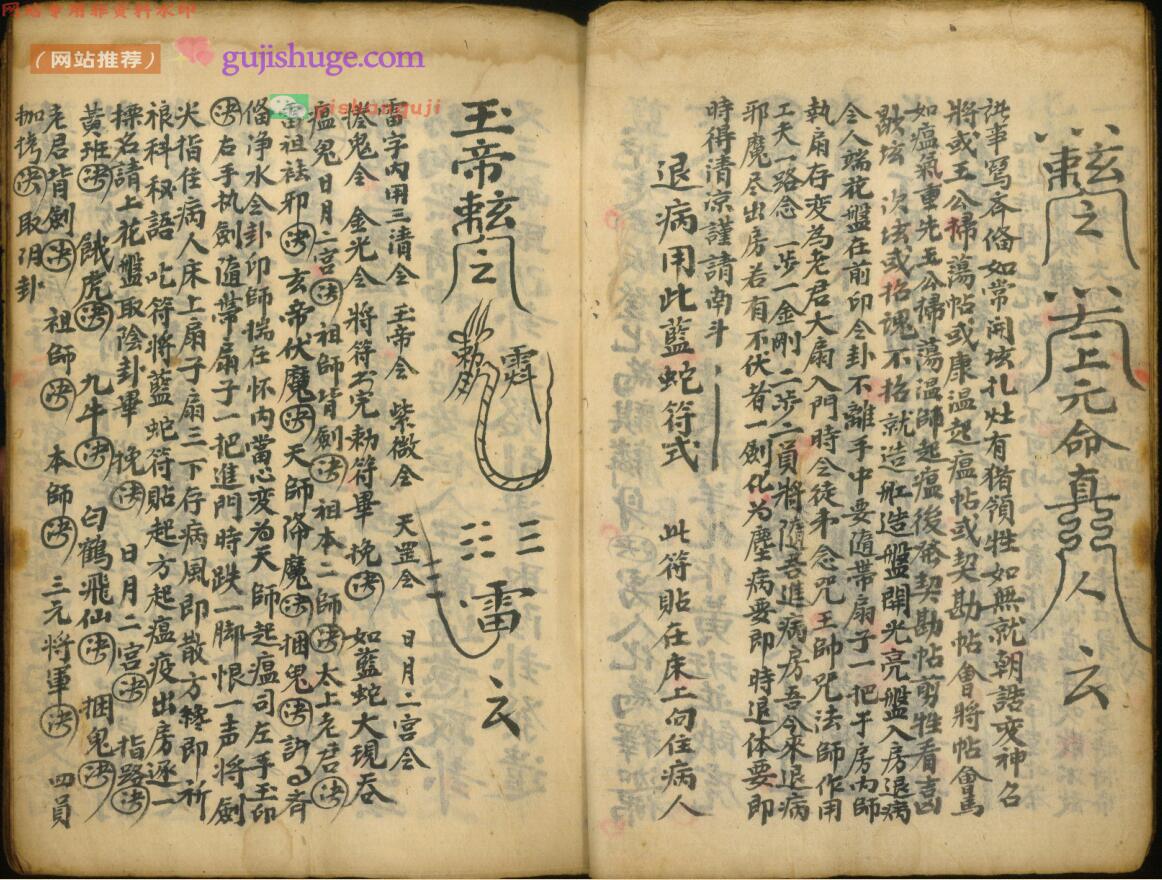 网站专用非资料水印
(网站推荐)
gujishuge.com
上元命真人 云
訣事寫吝俻如常開坛扎灶有猪領牲如無就朝誥变神名
將或王公掃蕩帖或康温起瘟帖或契勘帖會將帖會篤
如瘟氣重先王公掃蕩温師起瘟後發契勘帖剪牲看吉凶
令人端花盤在前印令卦不離手中要隨帶扇子一把于房内師
執扇存変為老君大扇入門時令徒弟念咒王帥咒法師作用
工夫一路念一步一金剛二步二員將隨吾進病房吾今來退病
邪魔尽出房若有不伏者一劍化為塵病要即時退体要即
時得清凉謹請南斗
退病用此藍蛇符式 此符貼在床上向住病人
玉帝
雷 云
雷字内用三清令 玉帝令 紫微令 天罡令 日月二宫令
鬼令 金光令 將符书完勅符畢 挽(决) 如藍蛇大現吞
瘟鬼日月二宫(决)祖師背劍(决)祖本二師(决)太上老君(决)
祖祛邪(决)玄帝伏魔(决)天師降魔(决)捆鬼(决)
俻净水令卦印師揣在怀内當心変为天師起瘟司左手玉印
(决)右手执劍隨帶扇子一把進門時跌一脚恨一声將劍
尖指住病人床上扇子扇三下存病風即散方終即祈
禄科秘語 叱符將藍蛇符貼起方起瘟疫出房逐一
摽名請上花盤取陰卦畢 挽(决) 日月二宫(决) 指路(决)
黄班(决) 餓虎(决) 九牛(决) 白鶴飛仙(决) 捆鬼(决)
老君背劍(决) 祖師(决) 本師(决) 三元將軍(决) 四員
枷拷(决)取阴卦